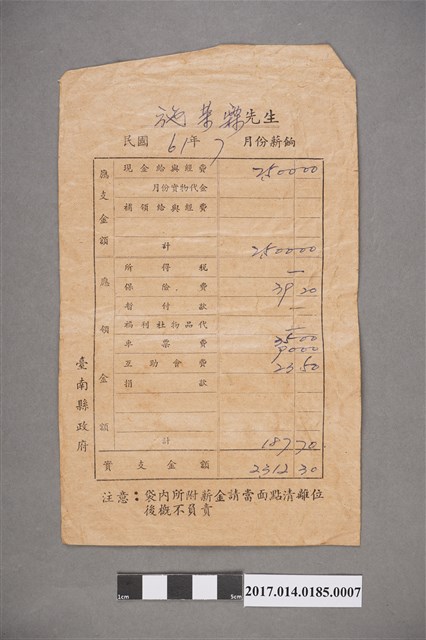 施 先生
民國 61年 7 月份薪餉
應支金額
現金給與經費 2500 00
月份實物代金
補領給與經費
計 2500 00
應領金額
所得稅 —
保險費 39 20
暫付款 —
福利社物品代 —
車票費 35 00
90 00
互助會費 23 50
捐款
計 187 70
實支金額 2312 30
臺南縣政府
注意：袋內所附薪金請當面點清離位
後概不負責
1cm 5cm
2017.014.0185.0007